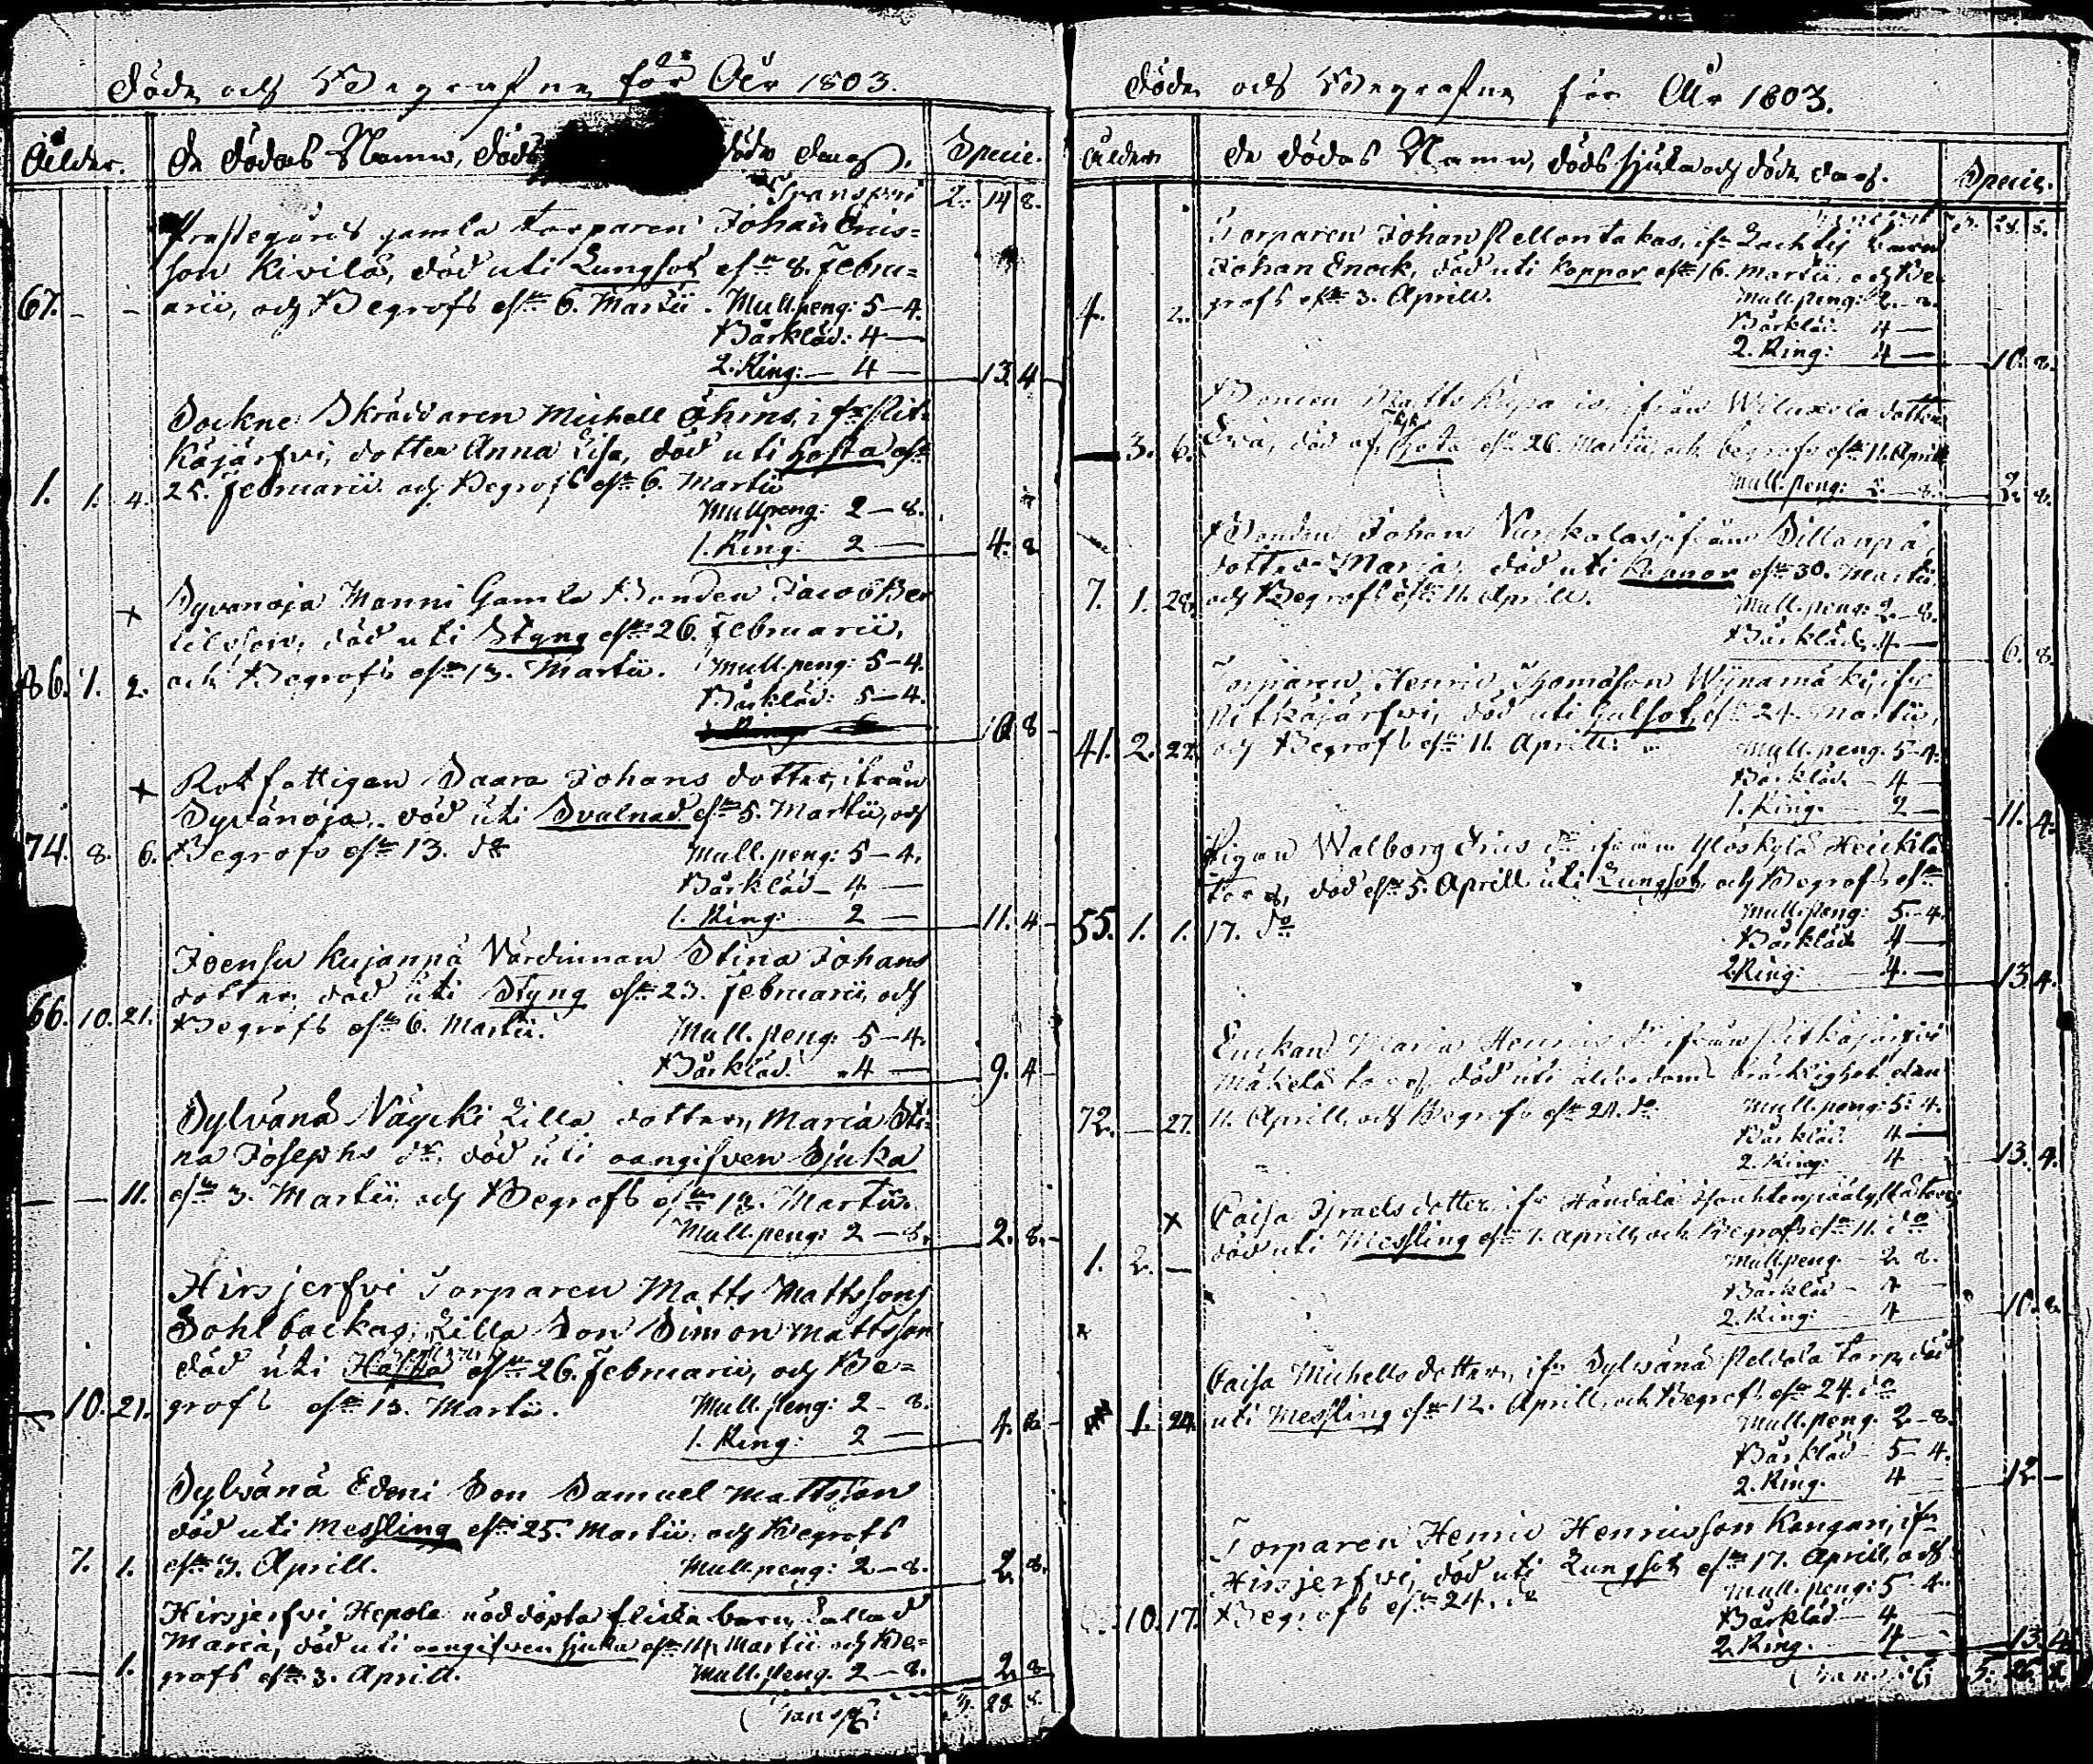 Döde och Begrafne för År 1803.
Ålder. De Dödas Namn, Döds döde dag. Specie.
Transport 2. 14 8.
Prästegårds gamla torparen Johan Erics=
son Kivilä, död uti Lungsot d. 8. Febru=
67. - - arii, och Begrofs d. 6. Martii. Mull.peng: 5-4.
Bårkläd: 4 —
2. Ring: — 4 — 13. 4
Sockne Skräddaren Michell Öhms, ifr. Pit=
käjärfvi, dotter Anna Lisa, död uti Hosta d.
1. 1. 4. 25. Februarii och Begrofs d. 6. Martii
Mullpeng: 2-8.
1. Ring: 2 — 4. 8
Syvänoja Manni Gamla Bonden Jacob Ber
tilsson, död uti Styng d. 26. Februarii,
86. 7. 2. och Begrofs d. 13. Martii. Mull.peng: 5-4.
Bårkläd: 5-4.
10 8
Rotfattigan Saara Johans dotter, ifrån
Syvänoja, död uti Svalnad d. 5. Martii, och
74. 8. 6. Begrofs d. 13. do
Mull.peng: 5-4.
Bårkläd - 4 —
1. Ring: 2 — 11. 4
Joensu Kujanpä Värdinnan Stina Johans
dotter, död uti Styng d. 23. Februarii, och
66. 10. 21. Begrofs d. 6. Martii.
Mull.peng: 5-4.
Bårkläd 4 — 9. 4
Sylvänä Näycki Lilla dotter, Maria Sti=
na Josephs dr. död uti oangifven Sjuka
— — 11. d. 3. Martii och Begrofs d. 13. Martii.
Mull.peng: 2-8. 2. 8.
Hirsjerfvi Torparen Matts Mattssons
Sohlbackas, Lilla Son Simon Mattsson
död uti Hosta d. 26. Februarii, och Be=
— 10. 21. grofs d. 13. Martii. Mull.peng: 2-8.
1. Ring: 2 — 4. 8
Sylvänä Edeni Son Samuel Mattsson
död uti Messling d. 25. Martii och Begrofs
7. 1. d. 3. Aprill. Mull.peng: 2-8. 2. 8.
Hirsjerfvi Hepola nöddöpta flicka barn, kallad
Maria, död uti oangifven sjuka d. 14. Martii och Be=
1. grofs d. 3. Aprill. Mull.peng. 2-8. 2. 8
Transp: 3. 28. 8.
Döde och Begrafne för År 1803.
Ålder De Dödas Namn, Döds sjuka och döde dag. Specie.
Transport 3. 28. 8.
Torparen Johan Pellontakas, ifr. Lachtis barn
Johan Enock, död uti Koppor d. 16. Martii, och Be
4. 2. grofs d. 3. Aprill.
Mull.peng: 2-8.
Bårkläd. 4 —
2. Ring: 4 — 10. 8.
Bonden Matts från dotter
— 3. 6. Eva, död af d. 26. Martii och Begrofs d. 11. Aprill
Mull.peng: 2-8. 2. 8.
Bonden Johan ifrån Sillanpä
dotter Maria, död uti Koppor d. 30. Martii
7. 1. 28. och Begrofs d. 11. Aprill.
Mull.peng: 2-8.
Bårkläd. 4 — 6. 8.
Torparen Henric Thomasson Wijnamäki, ifr.
Pitkäjärfvi, död uti Gulsot, d. 24. Martii,
41. 2. 22. och Begrofs d. 11. Aprill.
Mull.peng. 5-4.
Bårkläd. - 4 —
1. Ring. 2 — 11. 4.
Pigan Walborg Erics dr. ifrån Yloskylä Heickilä
torp, död d. 5. Aprill uti Lungsot, och Begrofs d.
55. 1. 1. 17. do
Mull.peng: 5-4.
Bårkläd 4 —
2. Ring: 4. — 13. 4.
Enckan Maria Henrics dr. ifrån Pitkäjärfvi
Mäkelä torp, död uti ålderdoms bräcklighet den
72. — 27. 11. Aprill, och Begrofs d. 24. do. Mull.peng: 5-4.
Bårkläd. 4 —
2. Ring: 4 13. 4.
Caisa Israels dotter ifr. Händälä
död uti Messling d. 1. Aprill, och Begrofs d. 11. do
1. 2. — Mullpeng. 2 8.
Bårkläd - 4
2. Ring: 4 10. 8.
Caisa Michells dotter, ifr. Sylvänä Peldola torp, död
uti Messling d. 12. Aprill, och Begrofs d. 24. do
1. 24. Mull.peng. 2-8.
Bårkläd - 5-4.
2. Ring. 4 12 —
Torparen Henric Henricsson Kangari, ifr.
Hirsjerfvi, död uti Lungsot d. 17. Aprill, och
10. 17. Begrofs d. 24. do
Mull.peng: 5-4.
Bårkläd - 4
2. Ring. 4 13. 4
Transp: